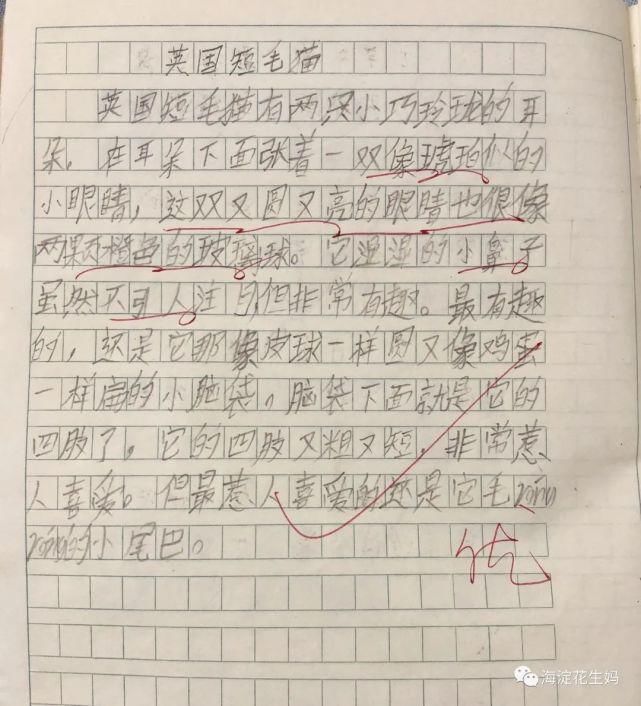 英国短毛猫
英国短毛猫有两只小巧玲珑的耳
朵，在耳朵下面张着一双像琥珀似的
小眼睛，这双又圆又亮的眼睛也很像
两颗橙色的玻璃球。它湿湿的小鼻子
虽然不引人注目，但非常有趣。最有趣
的，还是它那像皮球一样圆又像鸡蛋
一样扁的小脑袋。脑袋下面就是它的
四肢了，它的四肢又粗又短，非常惹
人喜爱。但最惹人喜爱的还是它毛róng
róng的小尾巴。
优
海淀花生妈